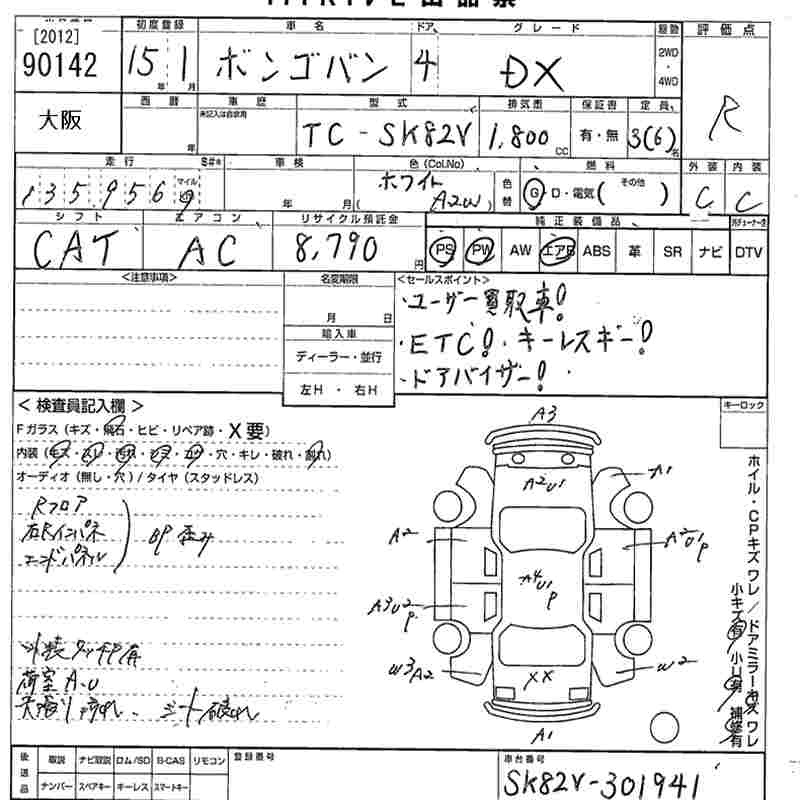 [2012]
90142
大阪
初度登録
15年 1月
車名
ボンゴバン
ドア
4
グレード
DX
駆動
2WD
・
4WD
評価点
R
西暦
年
車歴
未記入は自家用
型式
TC-SK82V
排気量
1,800 CC
保証書
有・無
定員
3(6)名
走行
135956
マイル
S#*
車検
年 月
色(Col.No)
ホワイト
( A2W )
色替
燃料
G・D・電気(その他 )
外装
C
内装
C
シフト
CAT
エアコン
AC
リサイクル預託金
8,790円
純正装備品
PS PW AW エアB ABS 革 SR ナビ DTV
<注意事項>
名変期限
月 日
輸入車
ディーラー・並行
左H ・ 右H
<セールスポイント>
・ユーザー買取車!
・ETC!・キーレスキー!
・ドアバイザー!
<検査員記入欄>
Fガラス(キズ・飛石・ヒビ・リペア跡・X要)
内装(キズ・スレ・汚れ・シミ・コゲ・穴・キレ・破れ・割れ)
オーディオ(無し・穴)/タイヤ(スタッドレス)
Rフロア
右Rインパネ
エンドパネル
BP歪み
外装タッチP有
荷室A.U
天張り汚れ、シート破れ
キーロック
A3
A2U1
A1
A2
A2U1P
A4U1P
A3U2P
W3A2
W2
XX
A1
ホイル・CPキズワレ/ドアミラーキズワレ
小キズ有 小U有 補修有
後送品
取説 ナビ取説 ロム/SD B-CAS リモコン
ナンバー スペアキー キーレス スマートキー
登録番号
車台番号
SK82V-301941